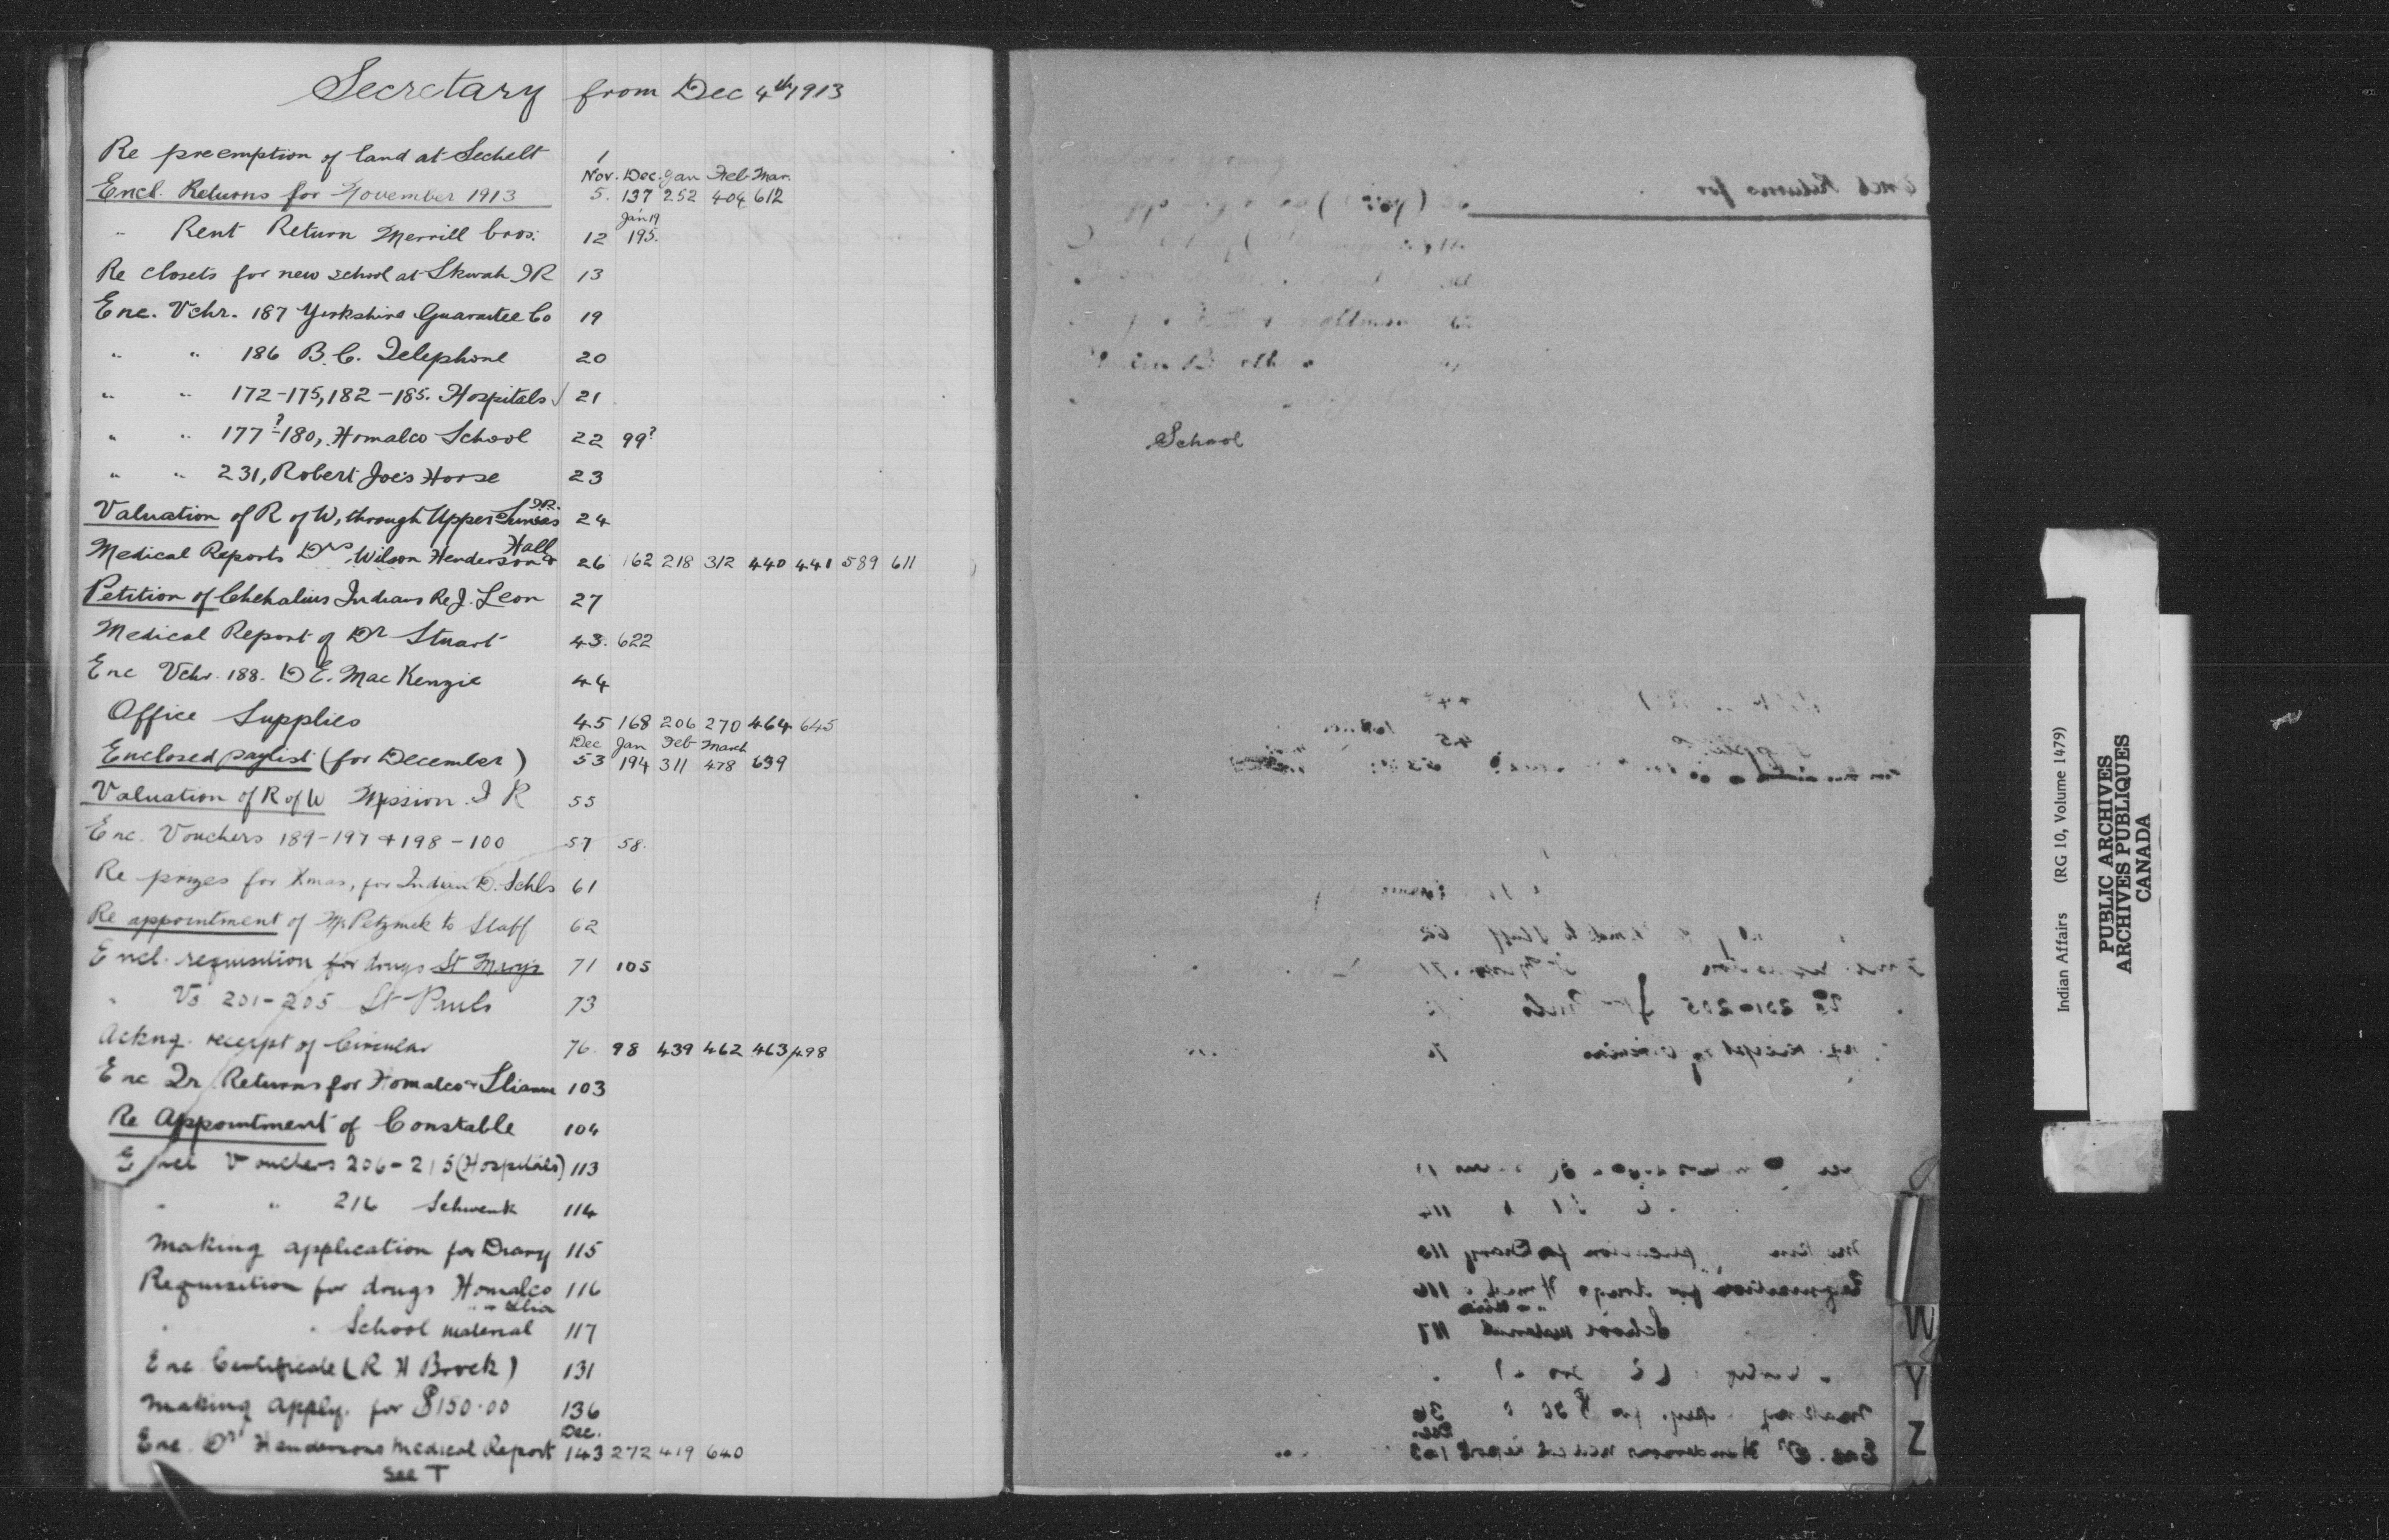 Secretary from Dec 4th 1913
Re preemption of land at Sechelt 1
Nov. Dec. Jan Feb. Mar.
Encl. Returns for November 1913 5. 137 252 404 612
Jan 19
" Rent Return Merrill Bros. 12 195.
Re closets for new school at Skwah IR 13
Enc. Vchr. 187 Yorkshire Guarantee Co 19
" " 186 B.C. Telephone 20
" " 172-175, 182-185. Hospitals 21
" " 177?-180, Homalco School 22 99?
" " 231, Robert Joe's Horse 23
Valuation of R of W, through Upper Sumas I.R. 24
Medical Reports Drs Wilson Henderson & Hall 26 162 218 312 440 441 589 611
Petition of Chehalius Indians Re J. Leon 27
Medical Report of Dr Stuart 43. 622
Enc Vchr. 188. D E. Mac Kenzie 44
Office Supplies 45 168 206 270 464 645
Dec Jan Feb March
Enclosed paylist (for December) 53 194 311 478 639
Valuation of R of W Mission I R 55
Enc. Vouchers 189-197 + 198-100 57 58.
Re prizes for Xmas, for Indian D. Schls 61
Re appointment of to Staff 62
Encl. requisition for drugs St Mary's 71 105
" Vo 201-205 St Pauls 73
Ackng. receipt of Circular 76. 98 439 462 463/498
Enc Qr Returns for Homalco + Sliammon 103
Re Appointment of Constable 104
Encl Vouchers 206-215 (Hospitals) 113
" " 216 Schwenk 114
Making application for Diary 115
Requisition for drugs Homalco 116
" " Slia
" " School material 117
Enc Certificate (R H Brock) 131
Making apply. for $150.00 136
Dec.
Enc. Dr Hendersons Medical Report 143 272 419 640
See T
School
Encl Returns for
W
Y
Z
Indian Affairs (RG 10, Volume 1479)
PUBLIC ARCHIVES
ARCHIVES PUBLIQUES
CANADA